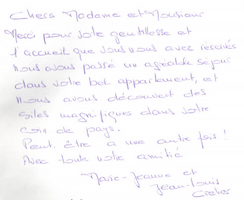 Chers Madame et Monsieur
Merci pour votre gentillesse et
l'accueil que vous nous avez
Nous avons passé un agréable séjour
dans votre bel appartement, et
Nous avons découvert des
sites magnifiques dans votre
coin de pays.
Peut être à une autre fois !
Avec toute notre amitié
Marie-Jeanne et
Jean-Louis